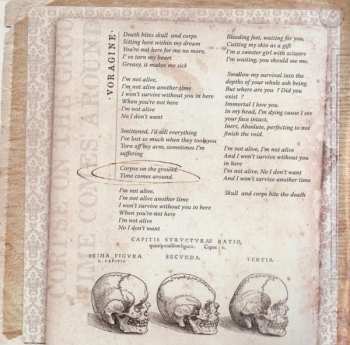 VORAGINE
Death bites skull and corps
Sitting here within my dream
You're not here for me no more,
I' ve torn my heart
Greasy, it makes me sick
I'm not alive,
I'm not alive another time
I won't survive without you in here
When you're not here
I'm not alive
No I don't want
Smittened, I'd kill everything
I've lost so much when they took you
Torn off my arm, sometimes I'm
suffering
Corpse on the ground.
Time comes around.
I'm not alive,
I'm not alive another time
I won't survive without you in here
When you're not here
I'm not alive
No I don't want
Bleeding feet, waiting for you,
Cutting my skin as a gift
I'm a sweeter girl with scissors
I'm waiting, you should use me.
Swallow my survival into the
depths of your whole ash being
But where are you ? Did you
exist ?
Immortal I love you.
In my head, I'm dying cause I see
your face intact.
Inert, Absolute, perfecting to not
finish the void.
I'm not alive, I'm not alive
And I won't survive without you
in here
I'm not alive. No I don't want
And I won't survive another time
Skull and corps bite the death
CAPITIS STRVCTVRAE RATIO,
PRIMA FIGVRA
SECVNDA.
TERTIA.